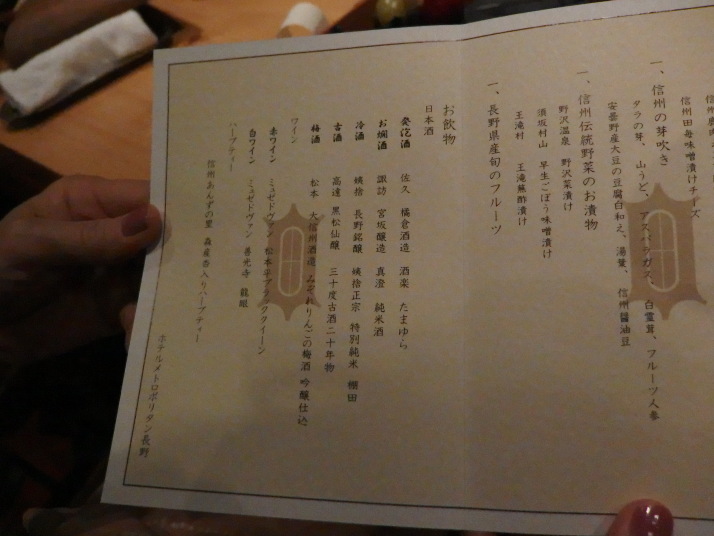 信州田毎味噌漬けチーズ
一、信州の芽吹き
タラの芽、山うど、アスパラガス、白霊茸、フルーツ人参
安曇野産大豆の豆腐白和え、湯葉、信州醤油豆
一、信州伝統野菜のお漬物
野沢温泉 野沢菜漬け
須坂村山 早生ごぼう味噌漬け
王滝村 王滝蕪酢漬け
一、長野県産旬のフルーツ
お飲物
日本酒
発泡酒 佐久 橘倉酒造 酒楽 たまゆら
お燗酒 諏訪 宮坂醸造 真澄 純米酒
冷酒 姨捨 長野銘醸 姨捨正宗 特別純米 棚田
古酒 高遠 黒松仙醸 三十度古酒二十年物
梅酒 松本 大信州酒造 みぞれりんごの梅酒 吟醸仕込
ワイン
赤ワイン ミュゼドヴァン 松本平ブラッククイーン
白ワイン ミュゼドヴァン 善光寺 竜眼
ハーブティー
信州あんずの里 森産杏入りハーブティー
ホテルメトロポリタン長野